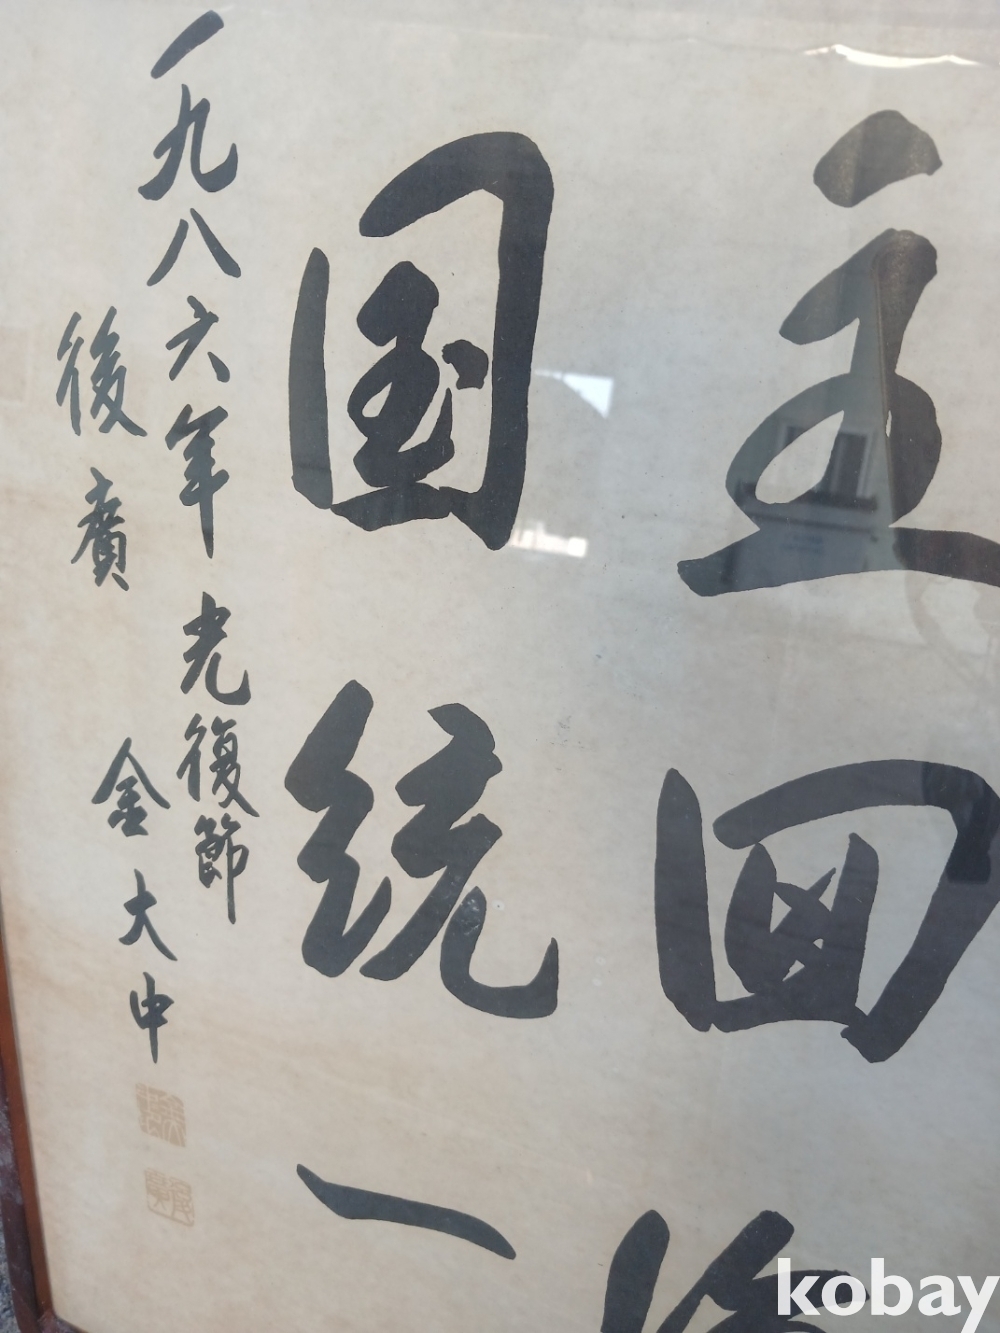 主回復
国統一
一九八六年 光復節
後廣 金大中
kobay